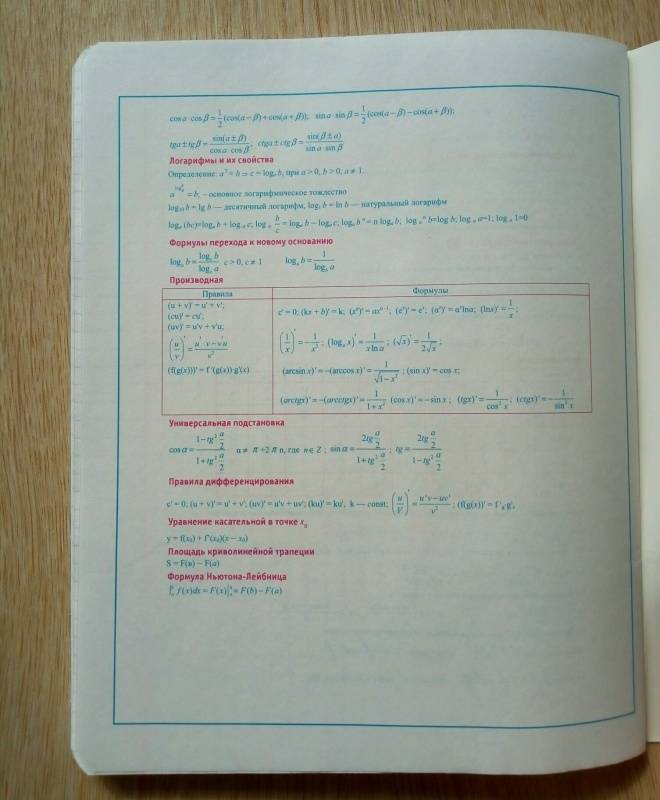 cosα·cosβ = 1/2 (cos(α−β)+cos(α+β)); sinα·sinβ = 1/2 (cos(α−β)−cos(α+β));
tgα±tgβ = sin(α±β)/(cosα·cosβ); ctgα±ctgβ = sin(β±α)/(sinα·sinβ)
Логарифмы и их свойства
Определение: a^c = b ⇒ c = logₐ b, при a > 0, b > 0, a ≠ 1.
a^(logₐ b) = b, – основное логарифмическое тождество
log₁₀ b = lg b — десятичный логарифм, logₑ b = ln b — натуральный логарифм
logₐ (bc)=logₐ b + logₐ c; logₐ b/c = logₐ b – logₐ c; logₐ bⁿ = n logₐ b; logₐⁿ bⁿ=log b; logₐ a=1; logₐ 1=0
Формулы перехода к новому основанию
logₐ b = log_c b / log_c a c > 0, c ≠ 1 logₐ b = 1/log_b a
Производная
Правила Формулы
(u + v)' = u' + v';
(cu)' = cu';
(uv)' = u'v + v'u;
c' = 0; (kx + b)' = k; (xᵃ)' = axᵃ⁻¹; (eˣ)' = eˣ; (aˣ)' = aˣlna; (lnx)' = 1/x;
(u/v)' = (u'v−v'u)/v²
(1/x)' = −1/x²; (logₐ x)' = 1/(x ln a); (√x)' = 1/(2√x);
(f(g(x)))' = f '(g(x))·g'(x)
(arcsin x)' = −(arccos x)' = 1/√(1−x²); (sin x)' = cos x;
(arctgx)' = −(arcctgx)' = 1/(1+x²) (cos x)' = −sin x; (tgx)' = 1/cos² x; (ctgx)' = −1/sin² x
Универсальная подстановка
cosα = (1−tg² a/2)/(1+tg² a/2) α ≠ π+2πn, где n∈Z; sinα = (2tg a/2)/(1+tg² a/2); tg = (2tg a/2)/(1−tg² a/2)
Правила дифференцирования
c' = 0; (u + v)' = u' + v'; (uv)' = u'v + uv'; (ku)' = ku', k — const; (u/V)' = (u'v−uv')/v²; (f(g(x))' = f 'g·g'ₓ
Уравнение касательной в точке x₀
y = f(x₀) + f'(x₀)(x – x₀)
Площадь криволинейной трапеции
S = F(в) – F(a)
Формула Ньютона-Лейбница
∫ₐᵇ f(x)dx = F(x)|ₐᵇ = F(b) – F(a)